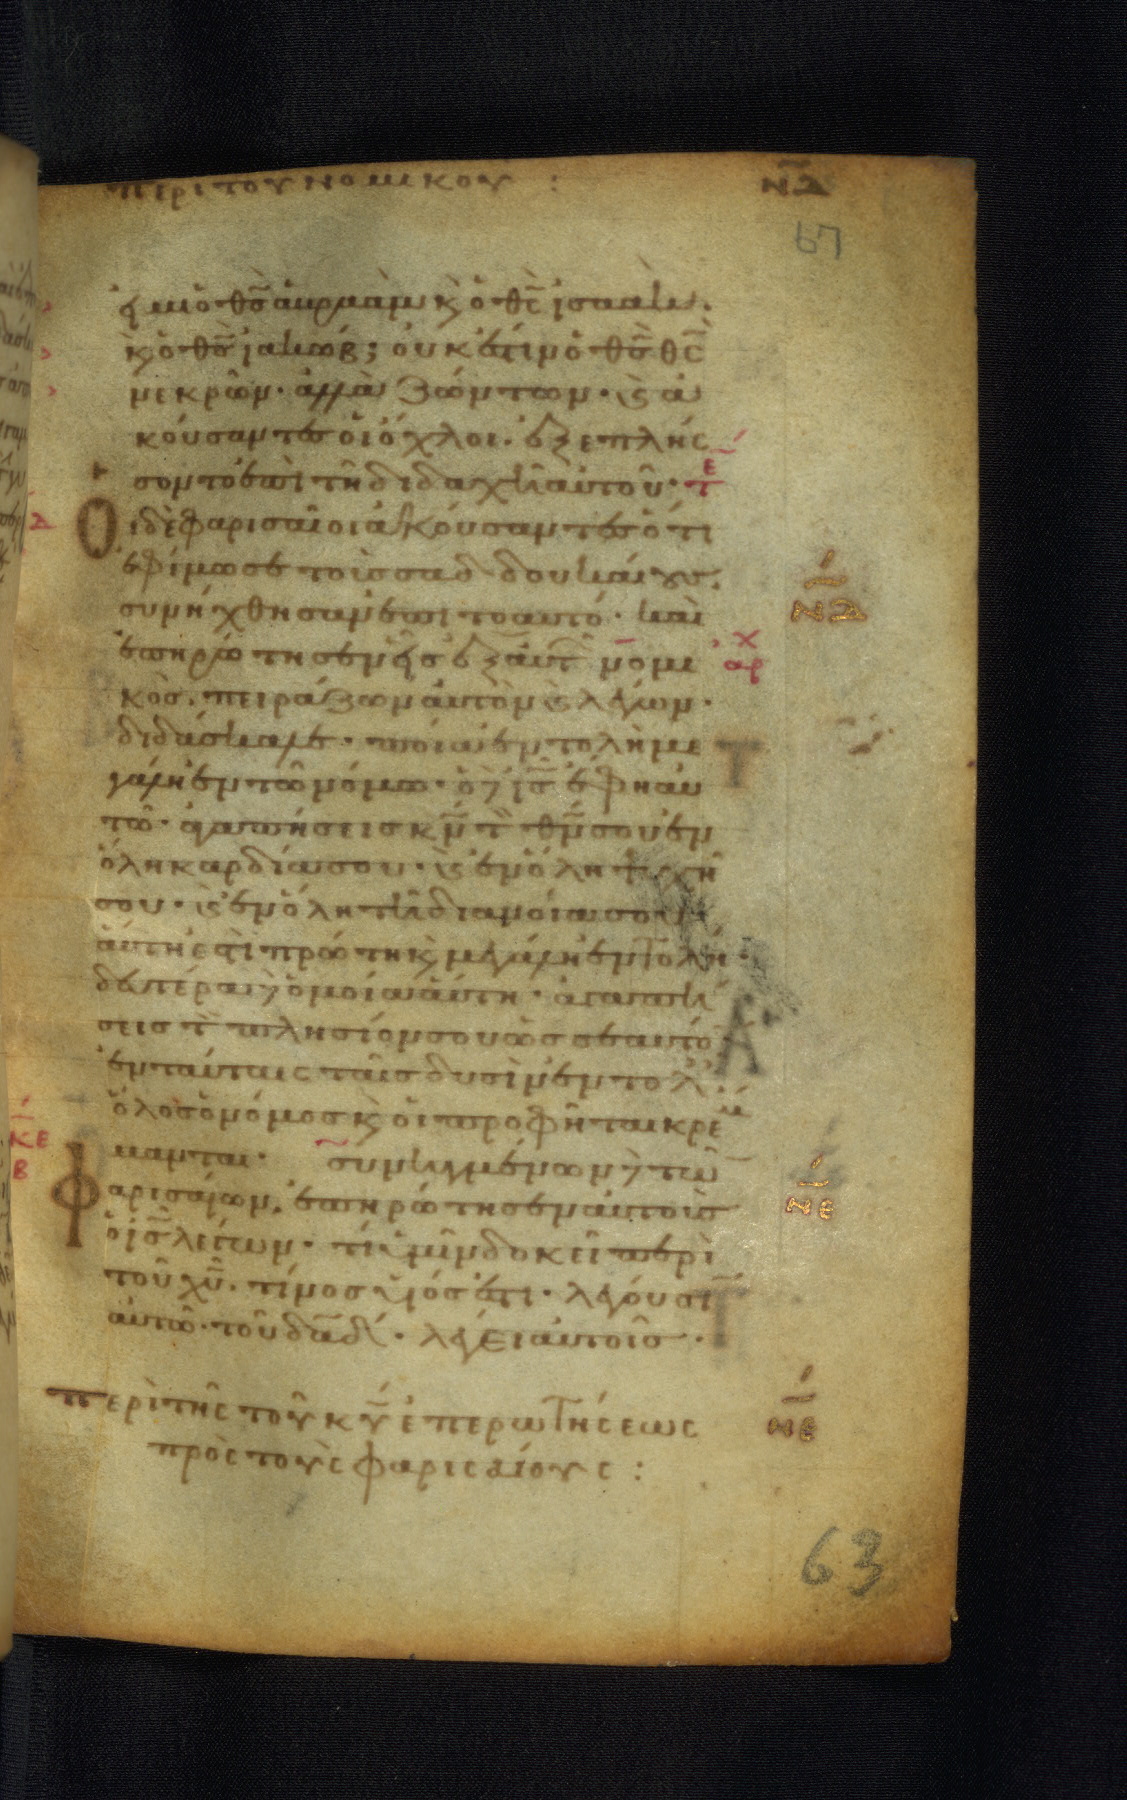 περι του νομικου : ΝΔ
67
εἰμι ὁ θς ἀβρααμ κ ὁ θς ἰσαακ·
κ ὁ θς ἰακωβ; οὐκ ἔστιν ὁ θς θς
νεκρῶν· ἀλλὰ ζώντων· κ ἀ
κούσαντες οἱ ὄχλοι· ἐξεπλήσ
σοντο ἐπὶ τῆ διδαχῆ αὐτοῦ· τε
Οἱ δὲ φαρισαῖοι ἀκούσαντες ὅτι
ἐφίμωσε τοὺς σαδδουκαίους·
ΝΔ
συνήχθησαν ἐπὶ τὸ αὐτό· καὶ
ἐπηρώτησεν εἷς ἐξ αὐτῶν νομι
αρχ
κὸς· πειράζων αὐτὸν κ λέγων·
διδάσκαλε· ποία ἐντολὴ με
γάλη ἐν τῶ νόμω· ὁ δὲ ις ἔφη αὐ
τῶ· ἀγαπήσεις κν τὸν θν σου ἐν
ὅλη καρδία σου· κ ἐν ὅλη ψυχῆ
σου· κ ἐν ὅλη τῆ διανοία σου·
αὕτη ἐστὶ πρώτη κ μεγάλη ἐντολή·
δευτέρα δὲ ὁμοία αὐτῆ· ἀγαπή
σεις τὸν πλησίον σου ὡς σεαυτό
ἐν ταύταις ταῖς δυσὶν ἐντολ
ὅλος ὁ νόμος κ οἱ προφῆται κρέ
μανται· συνηγμένων δὲ τῶν
ΚΕ
Β
Φαρισαίων· ἐπηρώτησεν αὐτοὺς
ΝΕ
ὁ ις λέγων· τί ὑμῖν δοκεῖ περὶ
τοῦ χυ· τίνος υἱός ἐστι· λέγουσι
αὐτῶ· τοῦ δαδ· λέγει αὐτοῖς·
περὶ τῆς τοῦ κυ ἐπερωτήσεως ΝΕ
πρὸς τοὺς φαρισαίους :
63